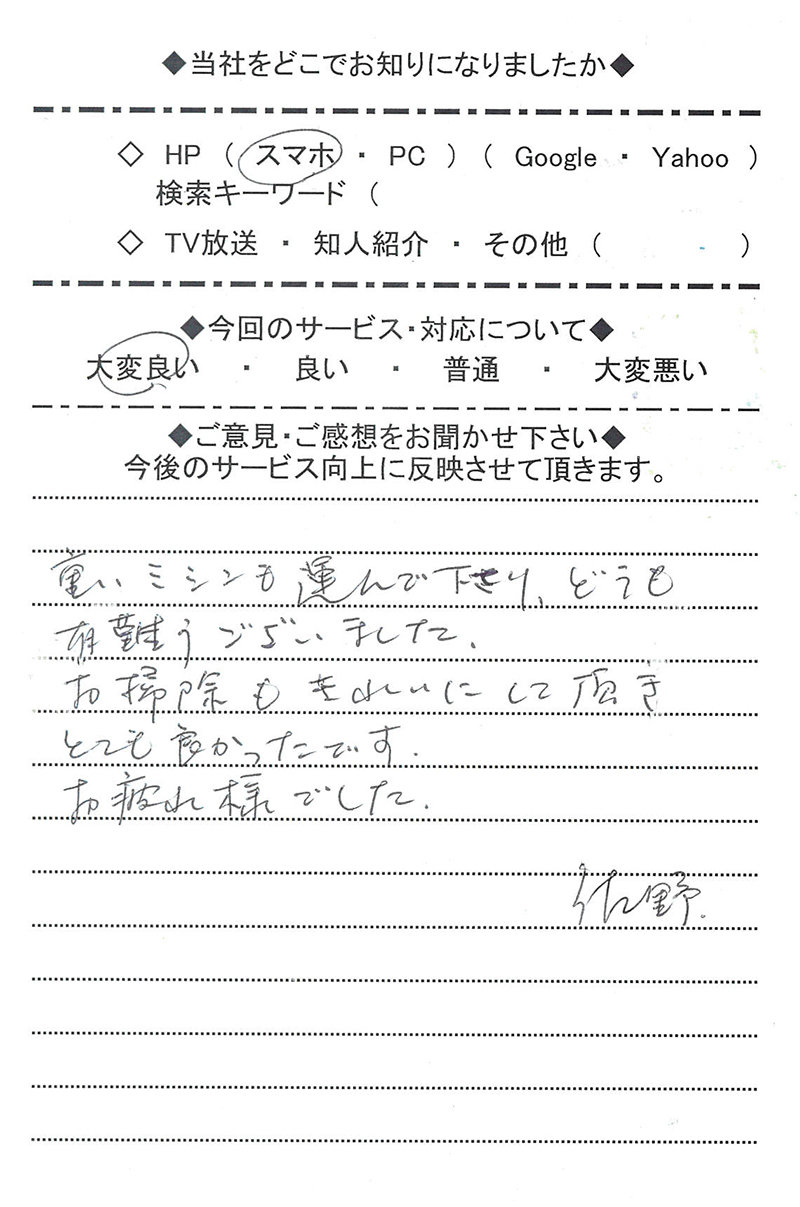 ◆当社をどこでお知りになりましたか◆
◇ HP ( スマホ ・ PC ) ( Google ・ Yahoo )
検索キーワード (
◇ TV放送 ・ 知人紹介 ・ その他 ( )
◆今回のサービス・対応について◆
大変良い ・ 良い ・ 普通 ・ 大変悪い
◆ご意見・ご感想をお聞かせ下さい◆
今後のサービス向上に反映させて頂きます。
重いミシンも運んで下さり、どうも
有難うございました。
お掃除もきれいにして頂き
とても良かったです。
お疲れ様でした。
佐野.